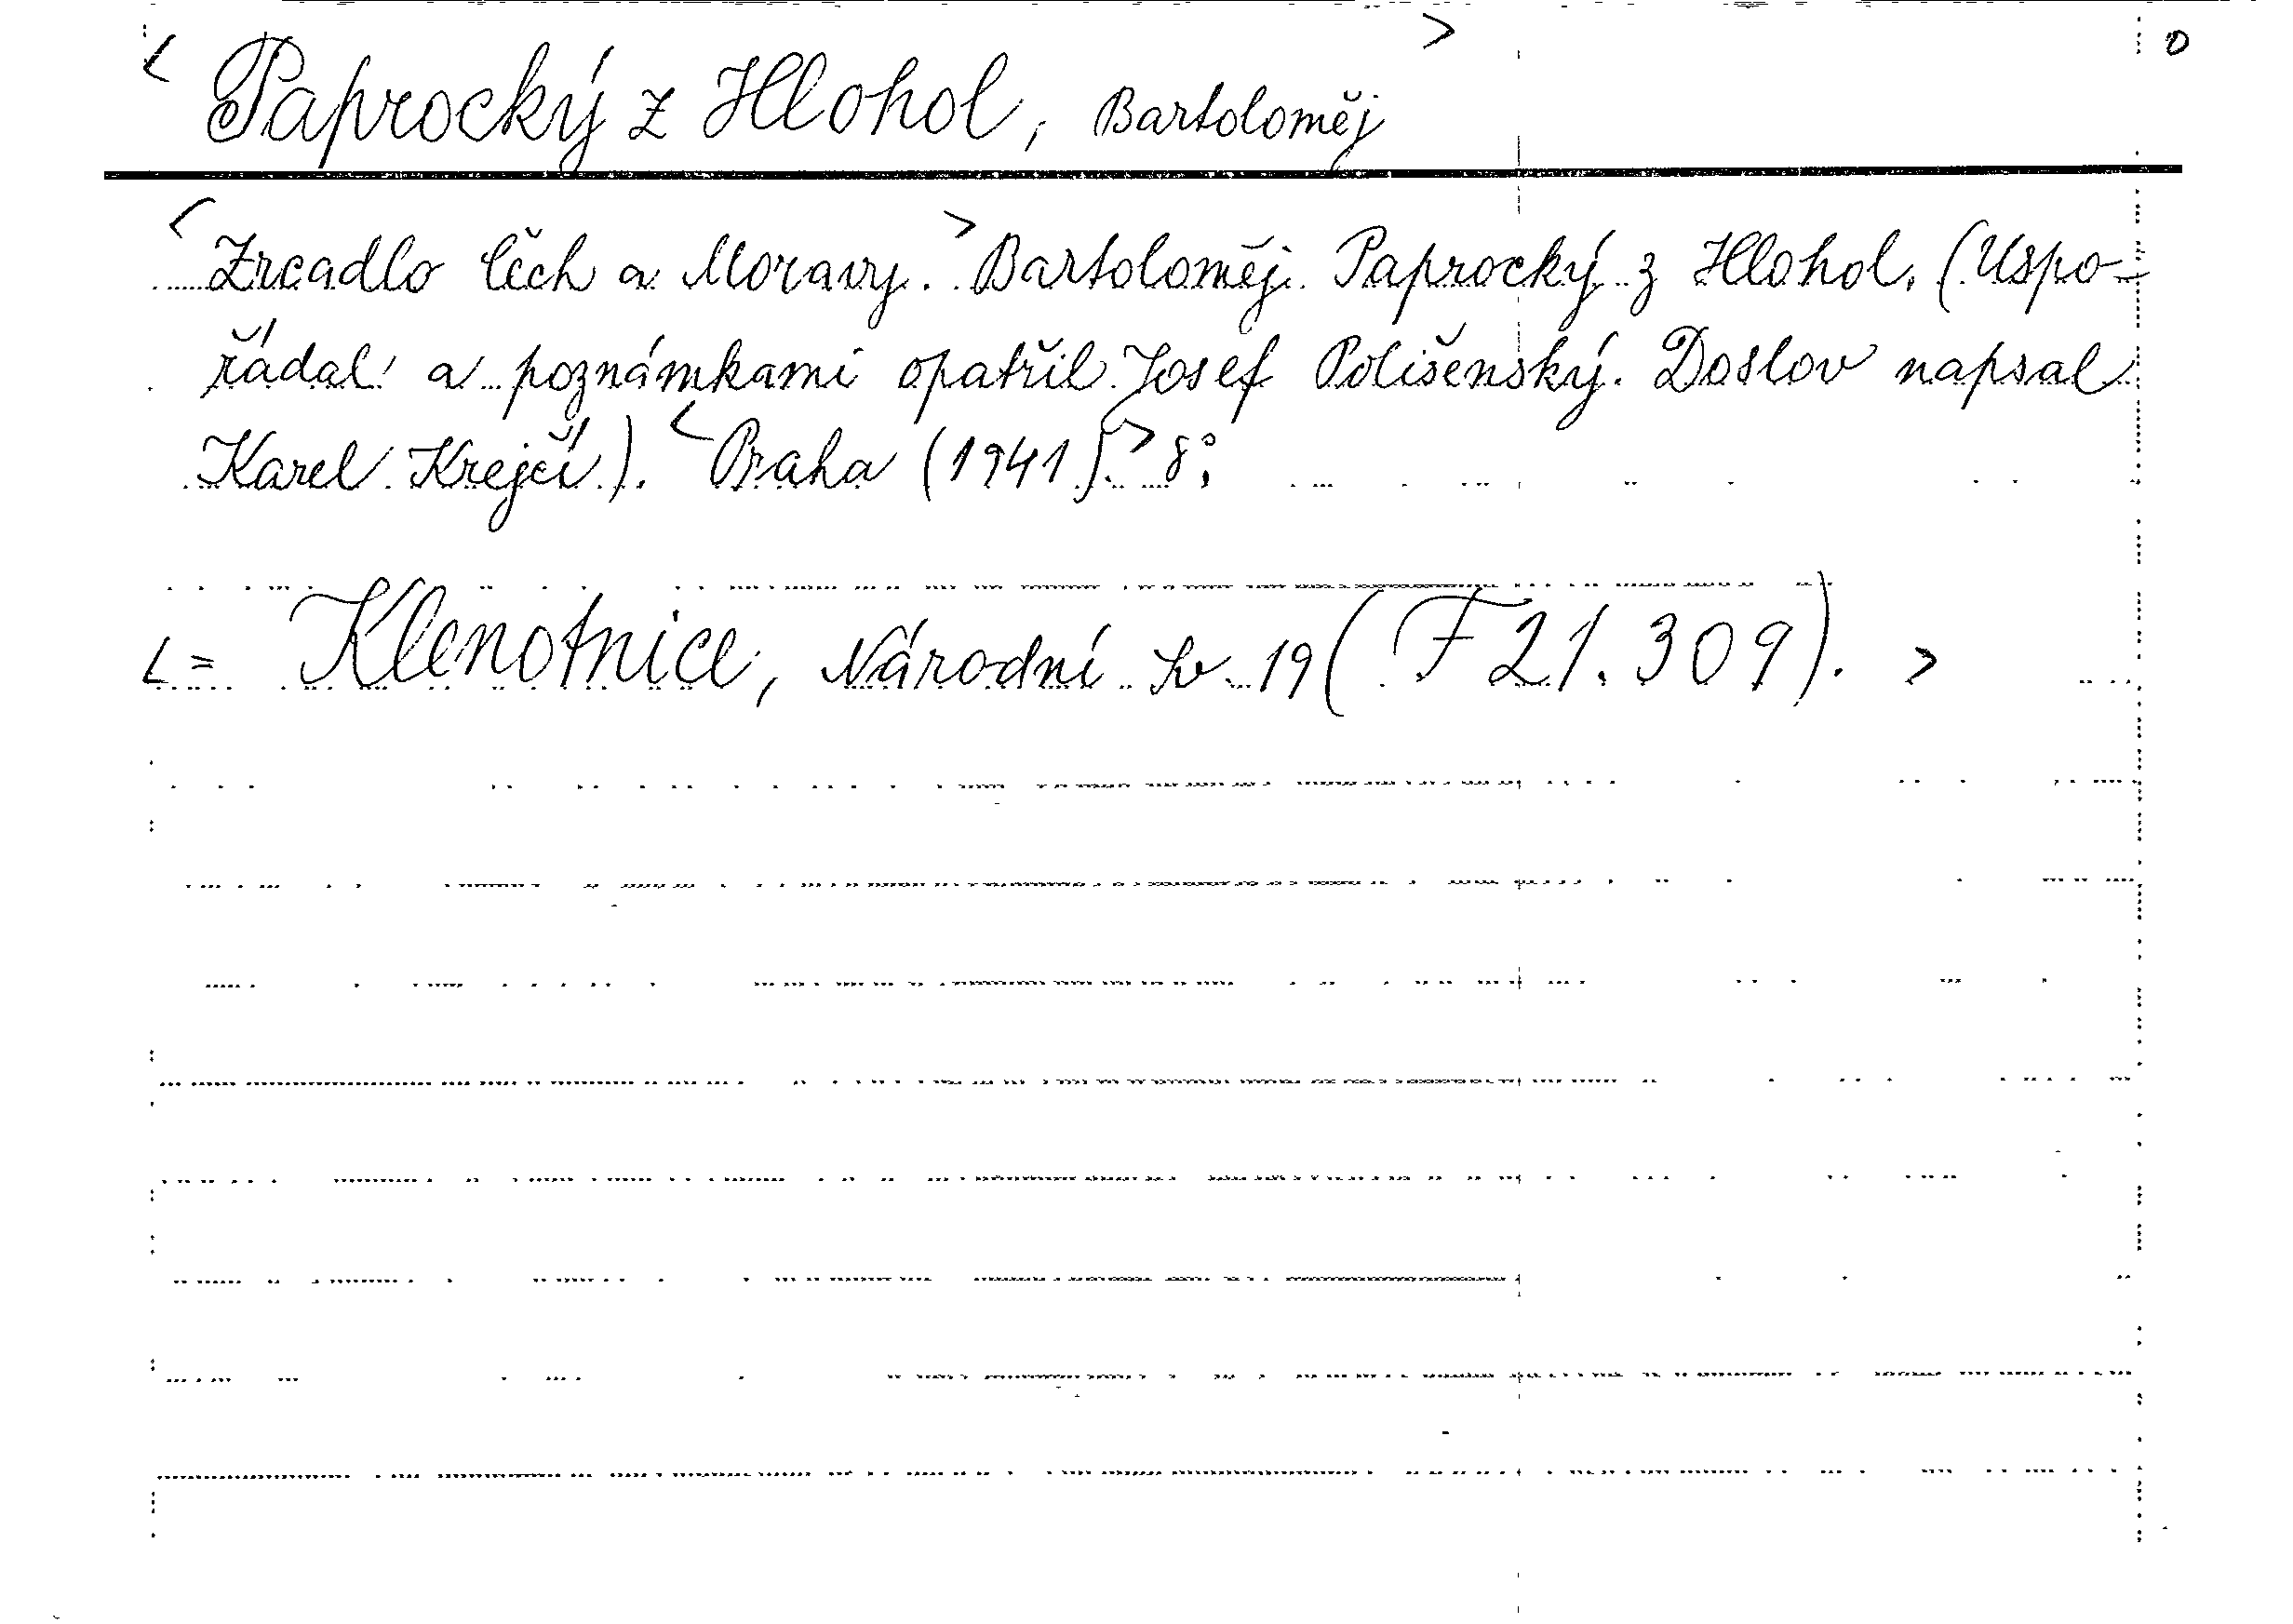 < Paprocký z Hlohol, Bartoloměj > 0
< Zrcadlo Čech a Moravy. > Bartoloměj Paprocký z Hlohol. (Uspo-
řádal a poznámkami opatřil Josef Polišenský. Doslov napsal
Karel Krejčí). < Praha (1941). > 8°.
< = Klenotnice, Národní Sv. 19 (F 21.309). >